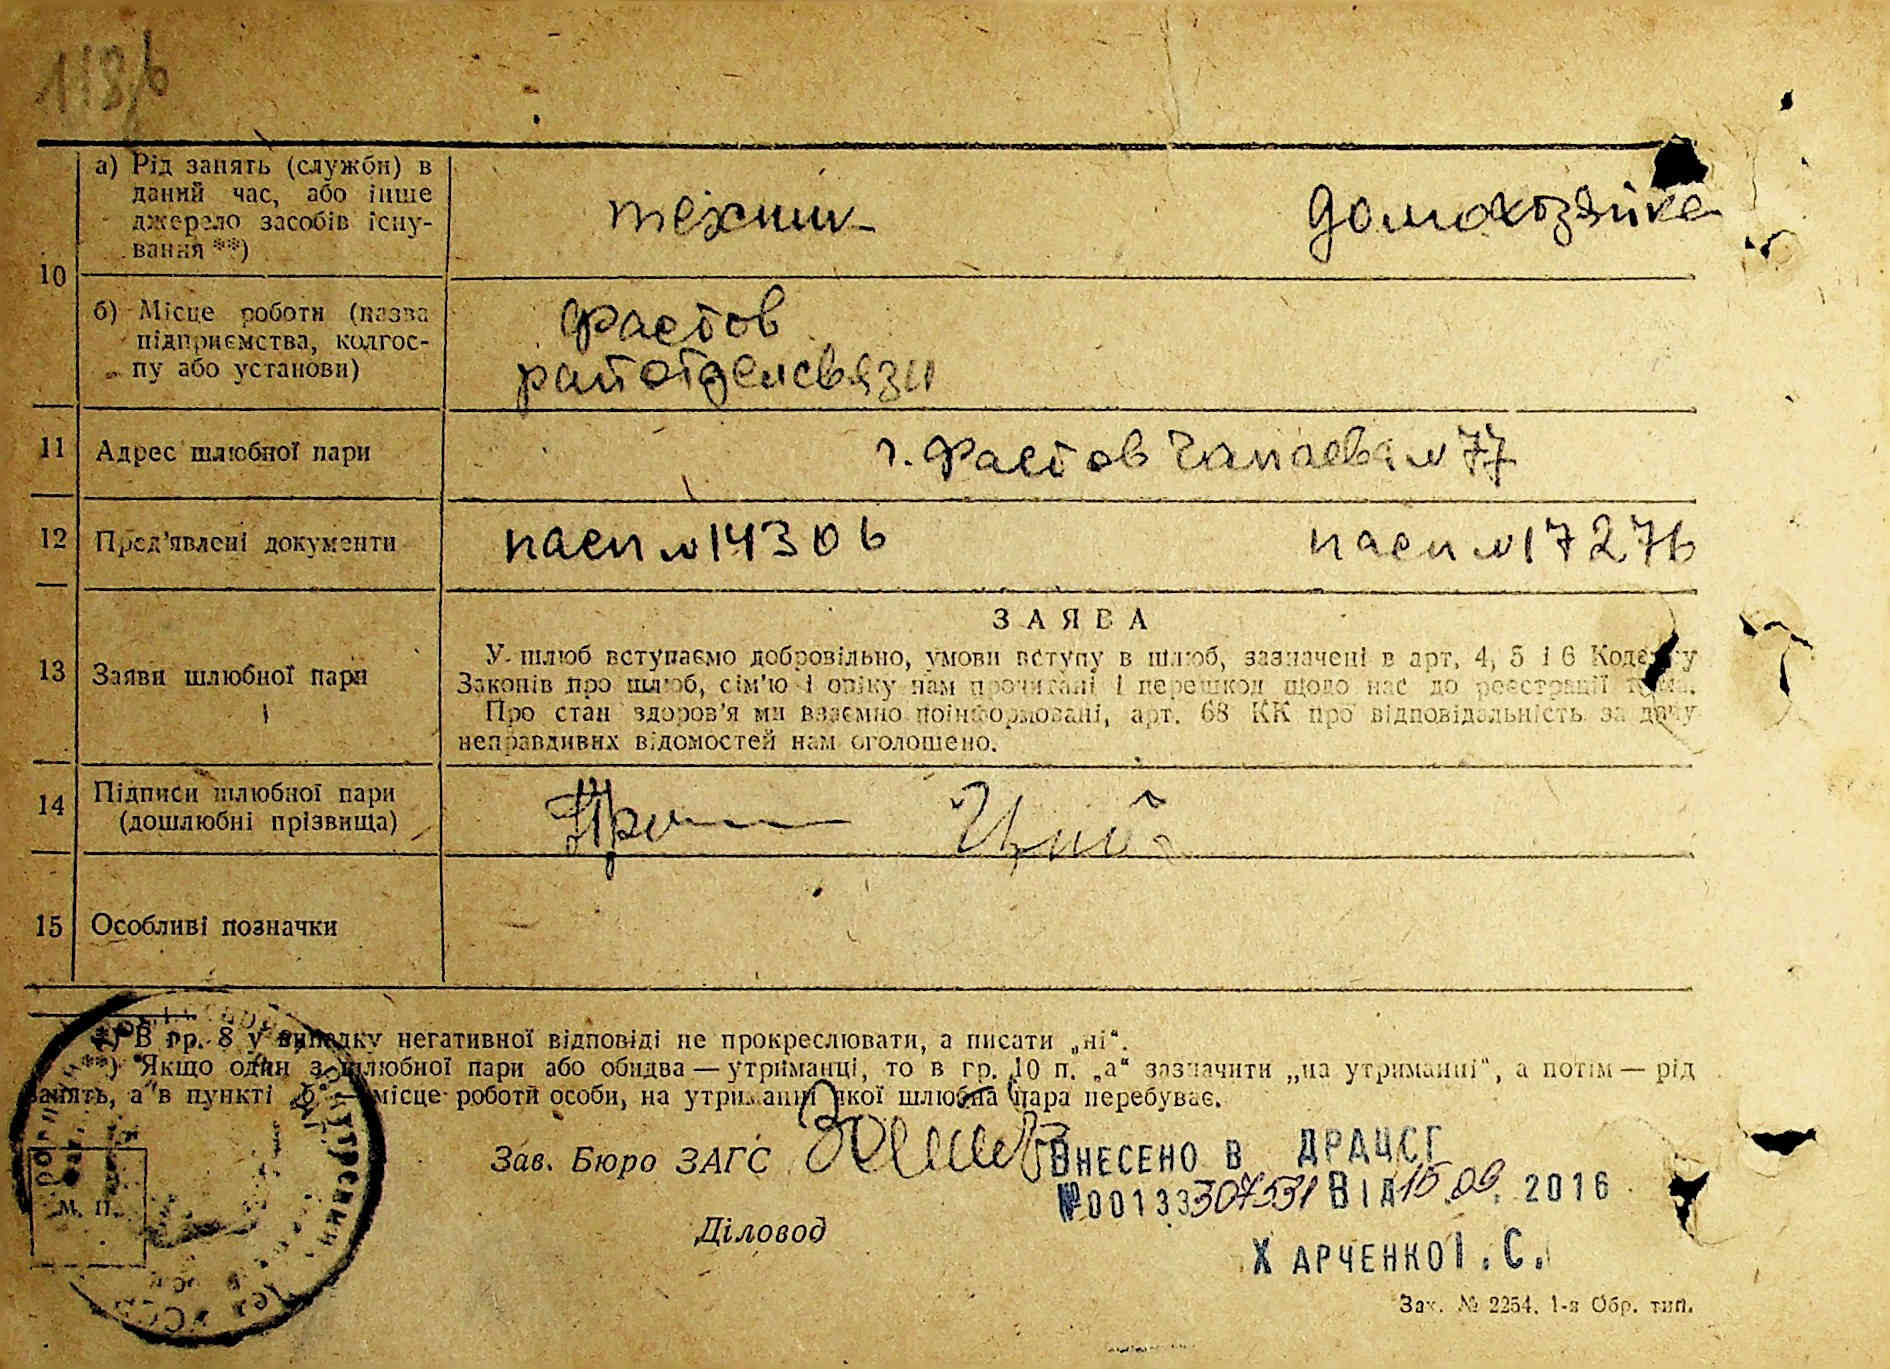 118б
а) Рід занять (служби) в
даний час, або інше
джерело засобів існу-
вання **)
техник
домохозяйка
10
б) Місце роботи (назва
підприємства, колгос-
пу або установи)
Фастов
райотделсвязи
11 Адрес шлюбної пари
г. Фастов Чапаева № 77
12 Пред'явлені документи
пасп № 14306
пасп № 17276
ЗАЯВА
13 Заяви шлюбної пари
У шлюб вступаємо добровільно, умови вступу в шлюб, зазначені в арт. 4, 5 і 6 Кодексу
Законів про шлюб, сім'ю і опіку нам прочитані і перешкод щодо нас до реєстрації нема.
Про стан здоров'я ми взаємно поінформовані, арт. 68 КК про відповідальність за дачу
неправдивих відомостей нам оголошено.
14 Підписи шлюбної пари
(дошлюбні прізвища)
15 Особливі позначки
*) В гр. 8 у випадку негативної відповіді не прокреслювати, а писати „ні“.
**) Якщо один з шлюбної пари або обидва — утриманці, то в гр. 10 п. „а“ зазначити „на утриманні“, а потім — рід
занять, а в пункті „б“ — місце роботи особи, на утриманні якої шлюбна пара перебуває.
Зав. Бюро ЗАГС
ВНЕСЕНО В ДРАЦСГ
№00133307531 ВІД 15.09. 2016
М. П.
Діловод
ХАРЧЕНКО І. С.
Зак. № 2254. 1-я Обр. тип.